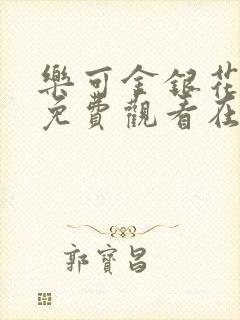 樂可金銀花
免費觀看在
郭寶昌